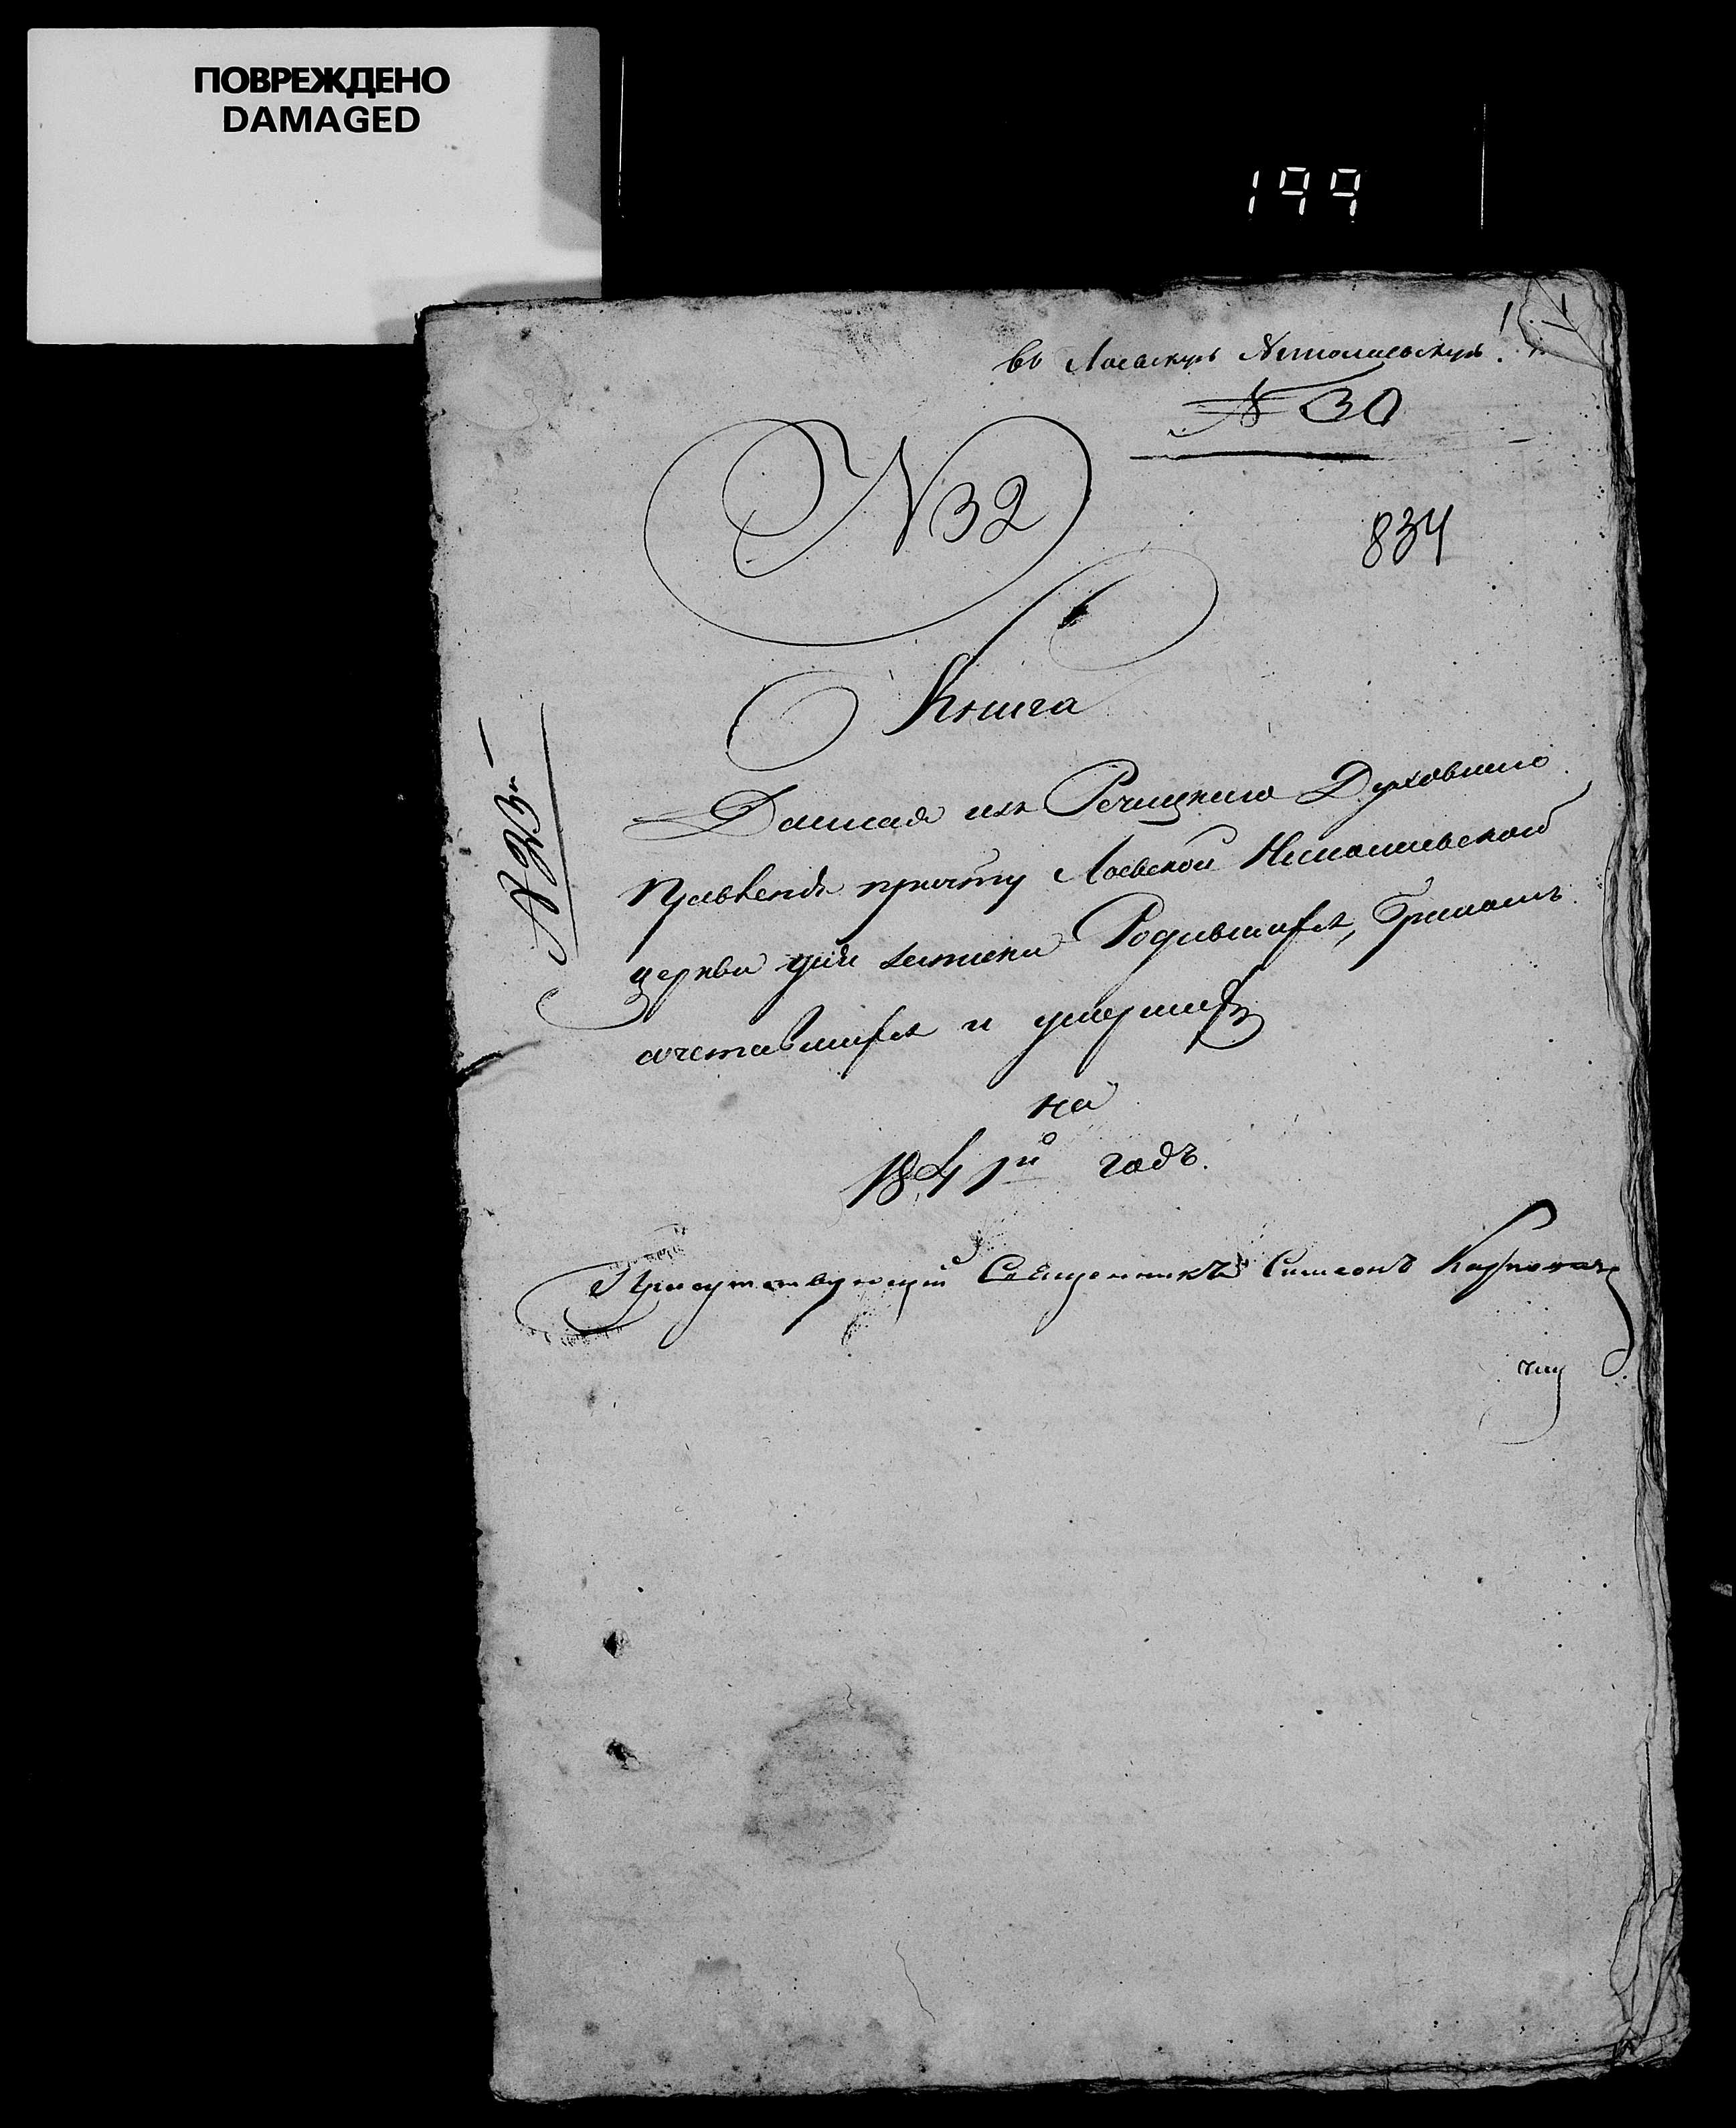 ПОВРЕЖДЕНО
DAMAGED
199
1
въ Лоевскую Николаевскую.
№ 30
№ 32
834
Книга
№ 23
Данная изъ Речицкаго Духовнаго
Правленія причту Лоевской Николаевской
церкви для записки Родившихся, Бракомъ
сочетавшихся и умершихъ
на
1841й годъ.
Присутствующій Священникъ Симеонъ Карпович